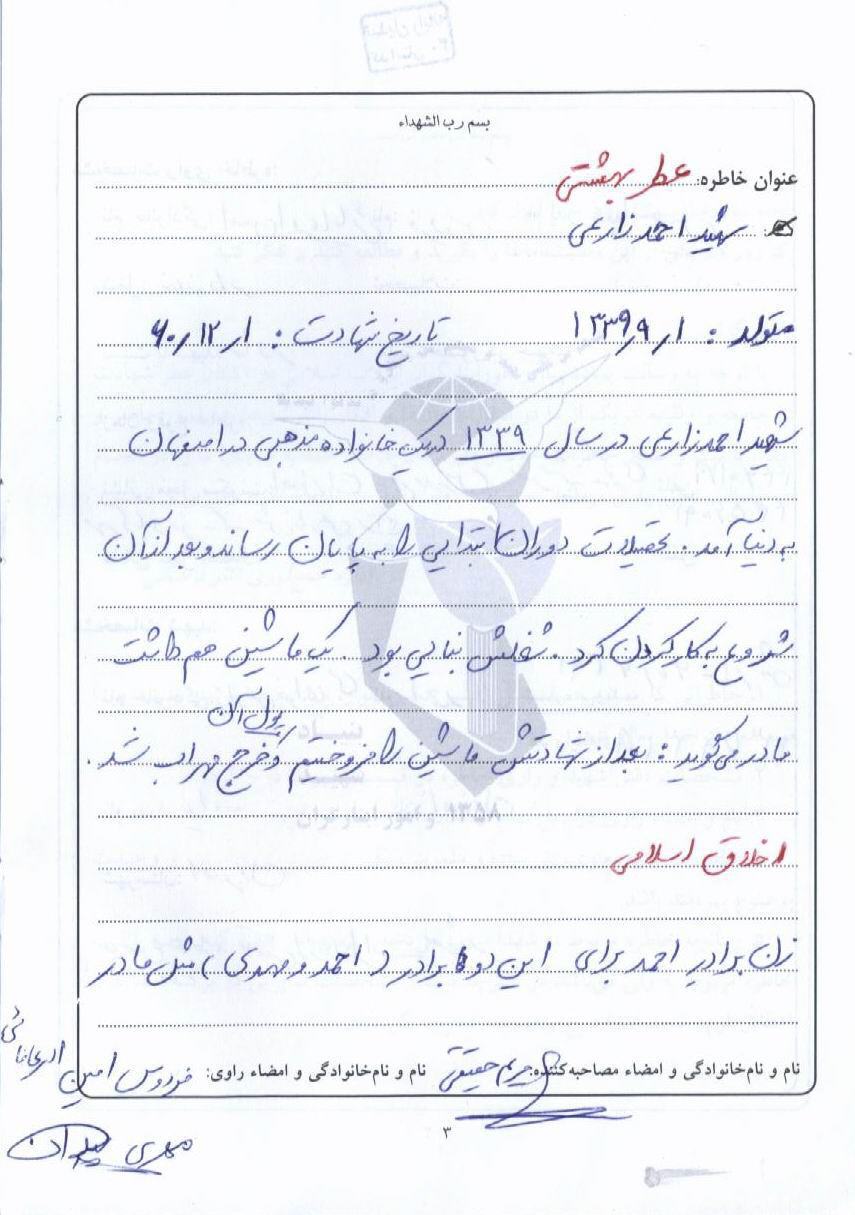 بسم رب الشهداء
عنوان خاطره: عطر بهشتی
شهید احمد زارعی
متولد : ۱۳۳۹٫۹٫۱ تاریخ شهادت : ۶۰٫۱۲٫۱
شهید احمد زارعی در سال ۱۳۳۹ در یک خانواده مذهبی در اصفهان
به دنیا آمد. تحصیلات دوران ابتدایی را به پایان رساند و بعد از آن
شروع به کار کردن کرد. شغلش بنایی بود. یک ماشین هم داشت
پول آن
مادر می گوید : بعد از شهادتش ماشین را فروختیم و خرج محراب شد.
اخلاق اسلامی
زن برادر احمد برای این دو برادر (احمد و مهدی) مثل مادر
نام و نام‌خانوادگی و امضاء مصاحبه‌کننده: مریم حقیقی نام و نام‌خانوادگی و امضاء راوی: فردوس امین
مهری
۳